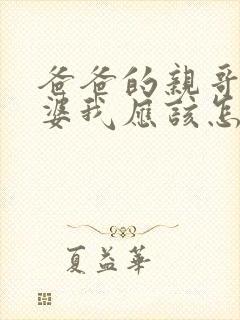 爸爸的親哥
婆我應該怎
夏益華